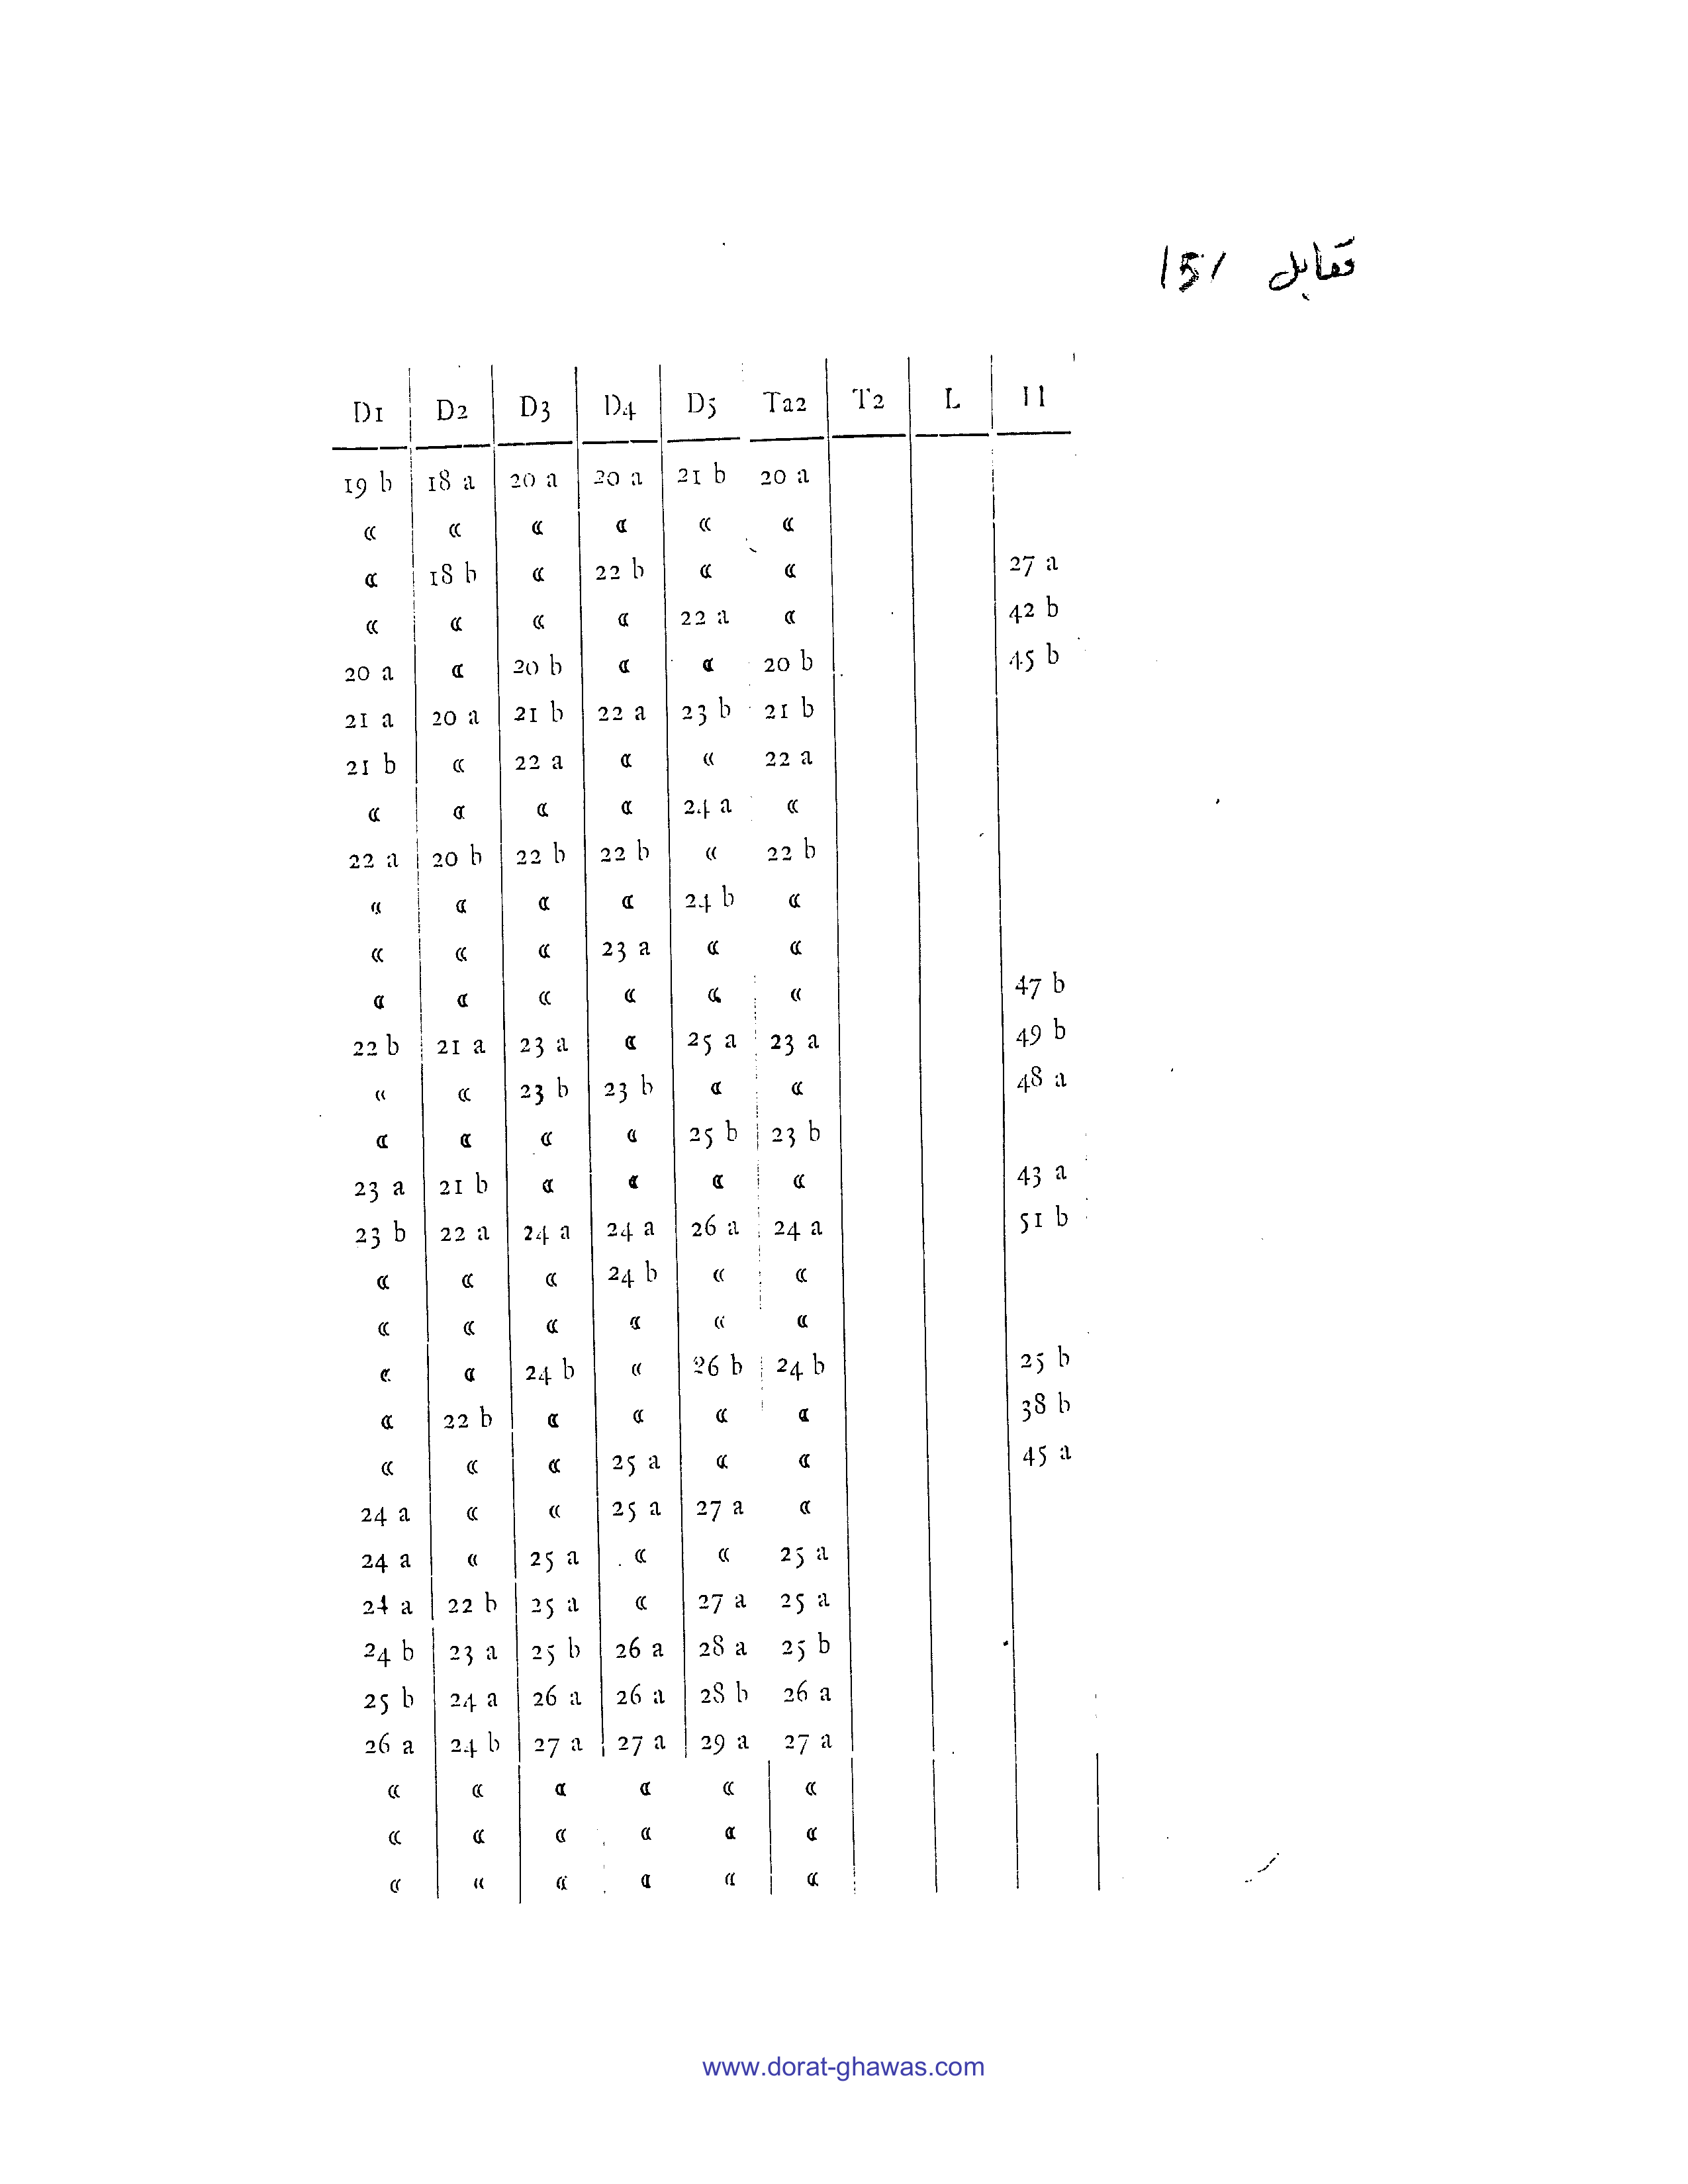 مقابل 151
D1 D2 D3 D4 D5 Ta2 T2 L I1
19 b 18 a 20 a 20 a 21 b 20 a
« « « « « «
« 18 b « 22 b « « 27 a
« « « « 22 a « 42 b
20 a « 20 b « « 20 b 45 b
21 a 20 a 21 b 22 a 23 b 21 b
21 b « 22 a « « 22 a
« « « « 24 a «
22 a 20 b 22 b 22 b « 22 b
« « « « 24 b «
« « « 23 a « «
« « « « « « 47 b
22 b 21 a 23 a « 25 a 23 a 49 b
« « 23 b 23 b « « 48 a
« « « « 25 b 23 b
23 a 21 b « « « « 43 a
23 b 22 a 24 a 24 a 26 a 24 a 51 b
« « « 24 b « «
« « « « « «
« « 24 b « 26 b 24 b 25 b
« 22 b « « « « 38 b
« « « 25 a « « 45 a
24 a « « 25 a 27 a «
24 a « 25 a « « 25 a
24 a 22 b 25 a « 27 a 25 a
24 b 23 a 25 b 26 a 28 a 25 b
25 b 24 a 26 a 26 a 28 b 26 a
26 a 24 b 27 a 27 a 29 a 27 a
« « « « « «
« « « « « «
« « « « « «
www.dorat-ghawas.com